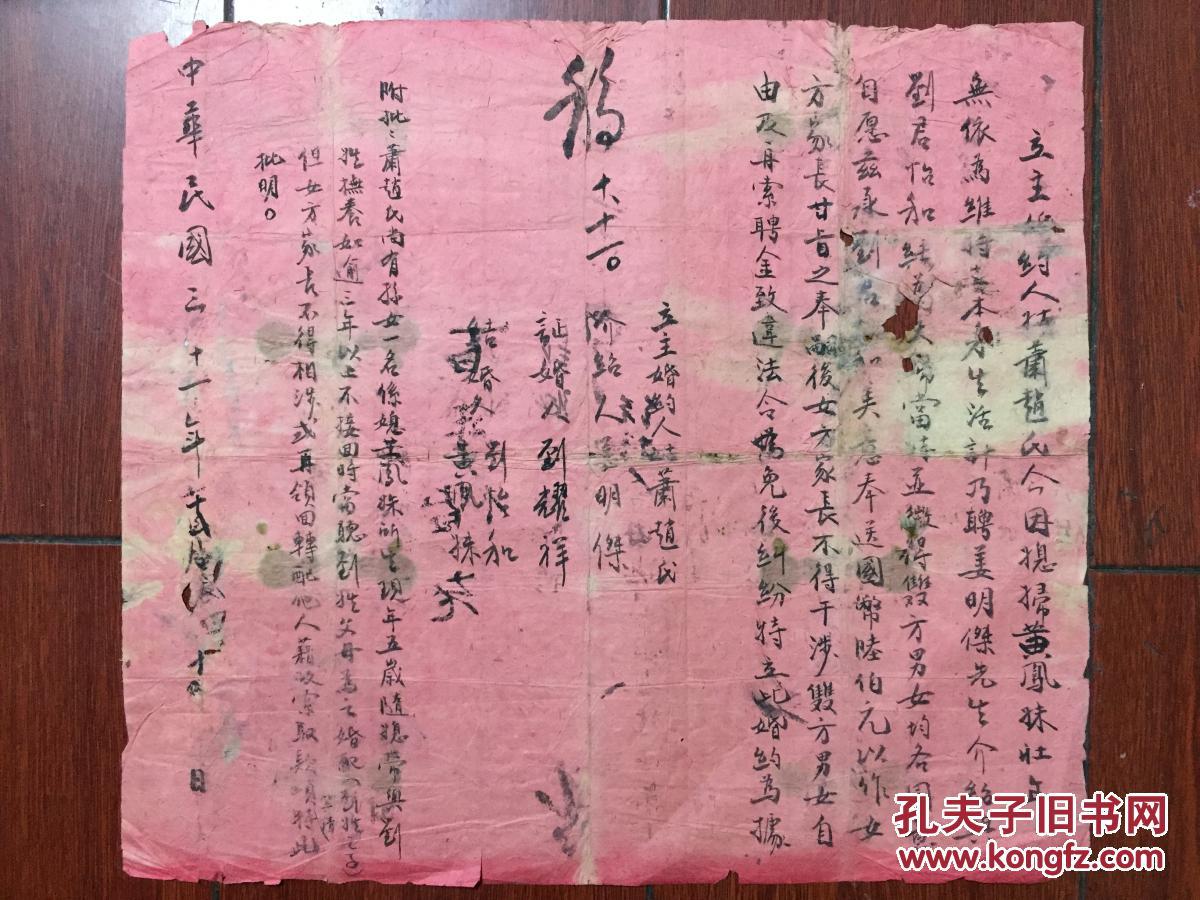 立主婚約人杜蕭趙氏今因媳孀黃鳳妹壯年
無依為維持其本身生活計乃聘姜明傑先生介紹與
劉君怡和結為夫婦當時並徵得雙方男女均各同意
自愿茲承劉君怡和美意奉送國幣陸伯元以作女
方家長甘旨之奉嗣後女方家長不得干涉雙方男女自
由及再索聘金致違法令為免後糾紛特立此婚約為據
立主婚約人 蕭趙氏
介紹人姜明傑
証婚人劉耀祥
結婚人 劉怡和
黃鳳妹
附批:蕭趙氏尚有孫女一名係媳黃鳳妹所生現年五歲隨媳帶與劉
姓撫養如逾三年以上不接回時當聽劉姓父母為之婚配
但女方家長不得相涉或再領回轉配他人藉故索取款項特此
批明。
中華民國三十一年 月 十 日
孔夫子旧书网
www.kongfz.com